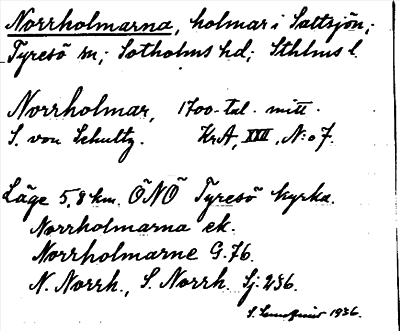 Norrholmarna, holmar i Saltsjön;
Tyresö sn; Sotholms hd; Sthlms l.
Norrholmar, 1700-tal. mitt
S. von Schultz. KrA, XXII, N:o 7.
Läge 5,8 km. ÖNÖ Tyresö kyrka.
Norrholmarna ek.
Norrholmarne G. 76.
N. Norrh., S. Norrh. Sj. 236.
S. 1936.